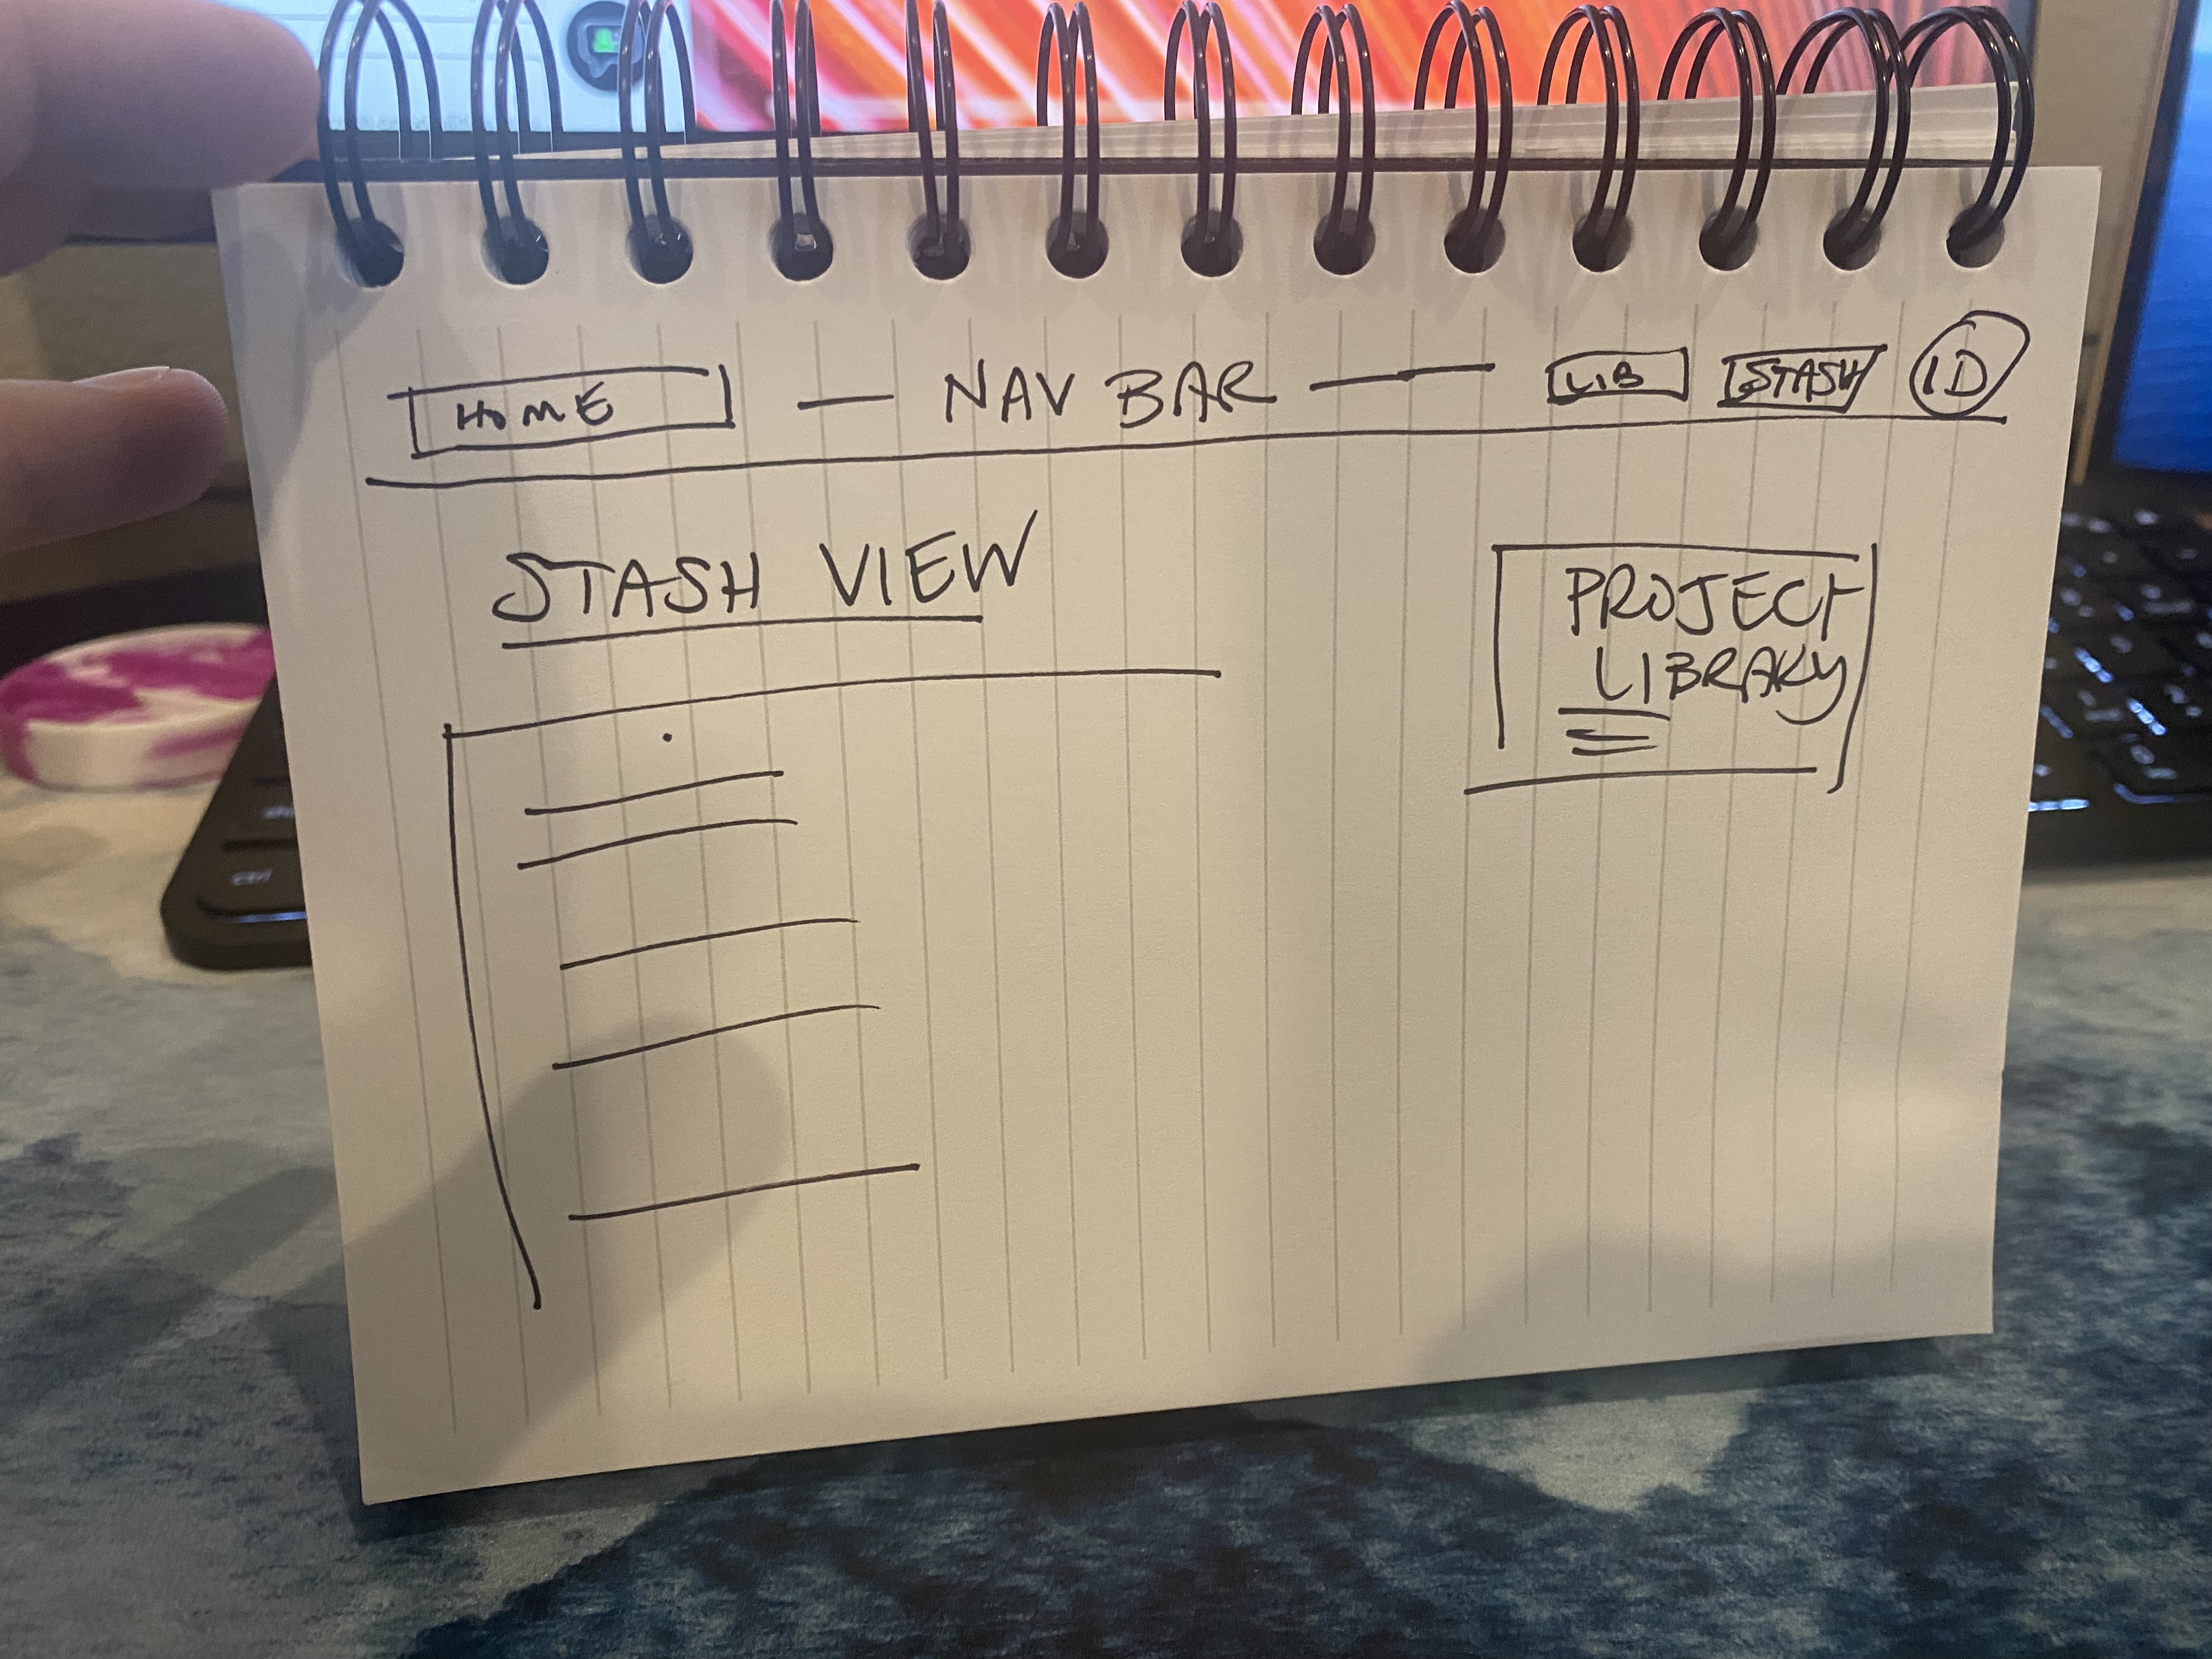 HOME — NAV BAR — LIB STASH ID
STASH VIEW
PROJECT
LIBRARY